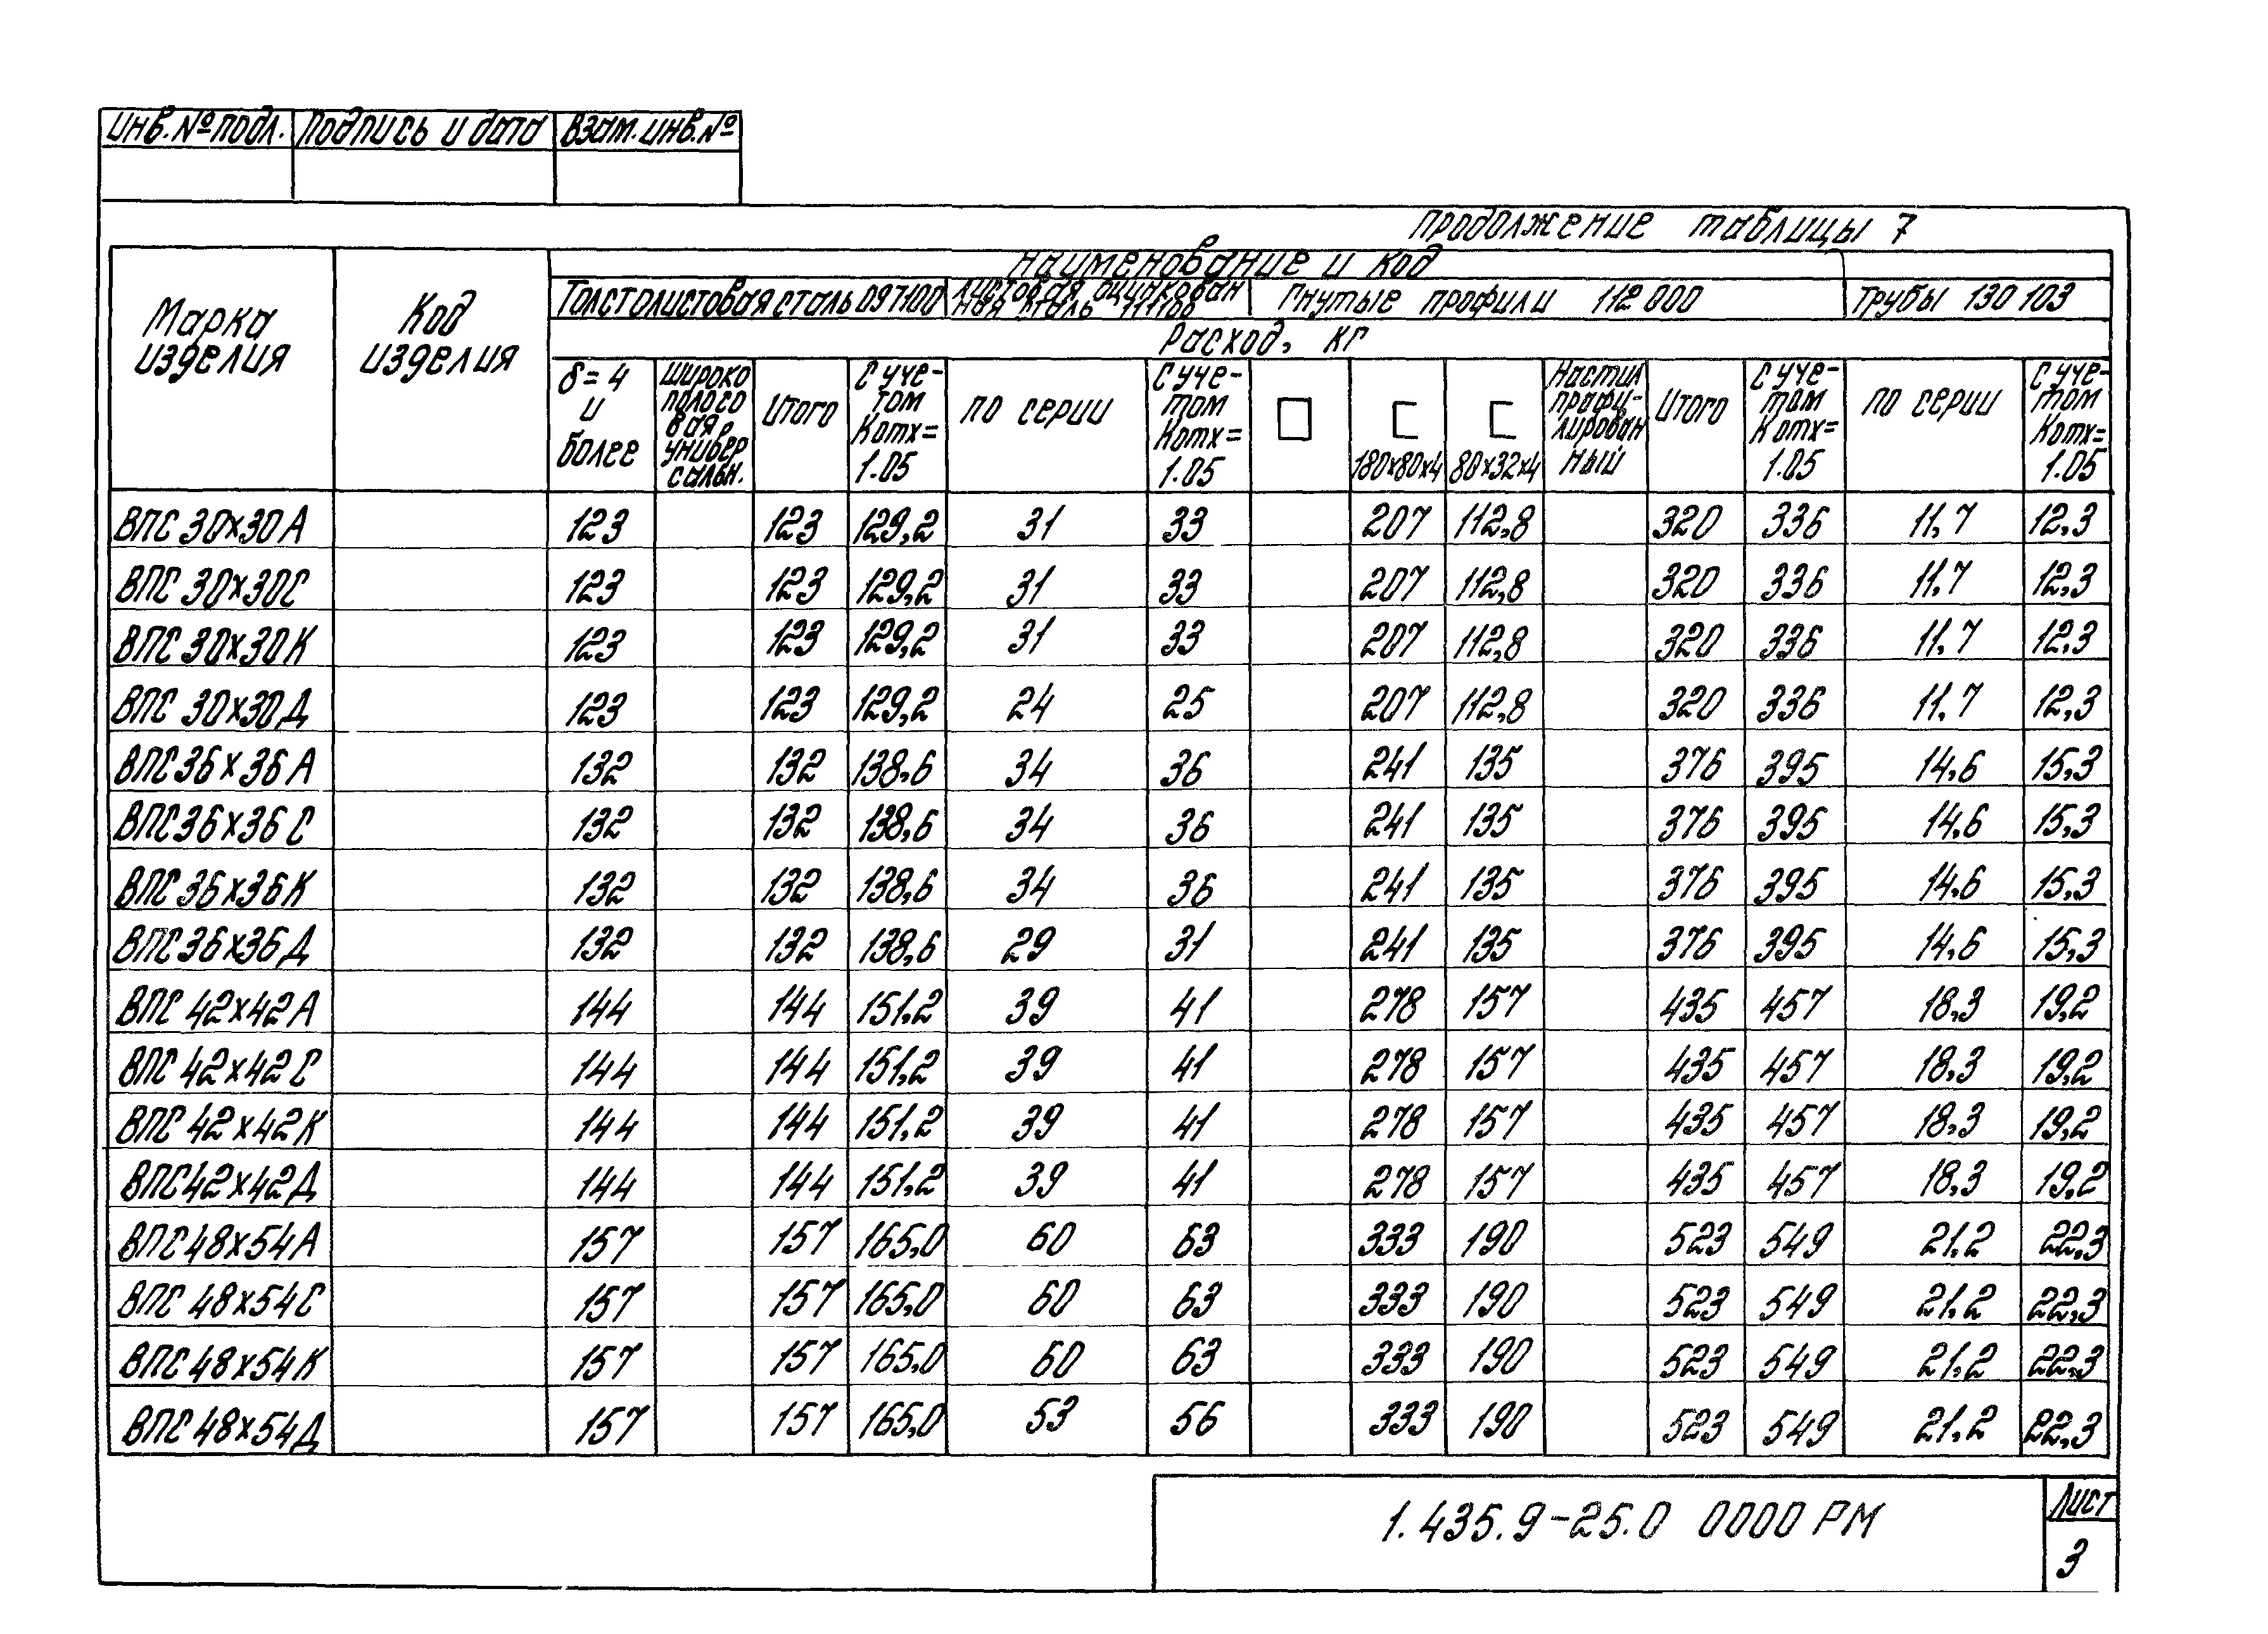 Инв.№подл. Подпись и дата Взам.инв.№
продолжение таблицы 7
Марка изделия Код изделия Наименование и код
Толстолистовая сталь 097100 Листовая оцинкованная сталь 111100 Гнутые профили 112000 Трубы 130103
Расход, кг
δ=4 и более Широкополосовая универсальн. Итого С учетом Котх=1.05 по серии С учетом Котх=1.05 □ [ 180х80х4 [ 80х32х4 Настил профилированный Итого С учетом Котх=1.05 по серии С учетом Котх=1.05
ВПС 30х30А 123 123 129,2 31 33 207 112,8 320 336 11,7 12,3
ВПС 30х30С 123 123 129,2 31 33 207 112,8 320 336 11,7 12,3
ВПС 30х30К 123 123 129,2 31 33 207 112,8 320 336 11,7 12,3
ВПС 30х30Д 123 123 129,2 24 25 207 112,8 320 336 11,7 12,3
ВПС 36х36А 132 132 138,6 34 36 241 135 376 395 14,6 15,3
ВПС 36х36С 132 132 138,6 34 36 241 135 376 395 14,6 15,3
ВПС 36х36К 132 132 138,6 34 36 241 135 376 395 14,6 15,3
ВПС 36х36Д 132 132 138,6 29 31 241 135 376 395 14,6 15,3
ВПС 42х42А 144 144 151,2 39 41 278 157 435 457 18,3 19,2
ВПС 42х42С 144 144 151,2 39 41 278 157 435 457 18,3 19,2
ВПС 42х42К 144 144 151,2 39 41 278 157 435 457 18,3 19,2
ВПС 42х42Д 144 144 151,2 39 41 278 157 435 457 18,3 19,2
ВПС 48х54А 157 157 165,0 60 63 333 190 523 549 21,2 22,3
ВПС 48х54С 157 157 165,0 60 63 333 190 523 549 21,2 22,3
ВПС 48х54К 157 157 165,0 60 63 333 190 523 549 21,2 22,3
ВПС 48х54Д 157 157 165,0 53 56 333 190 523 549 21,2 22,3
1.435.9-25.0 0000 РМ
Лист
3